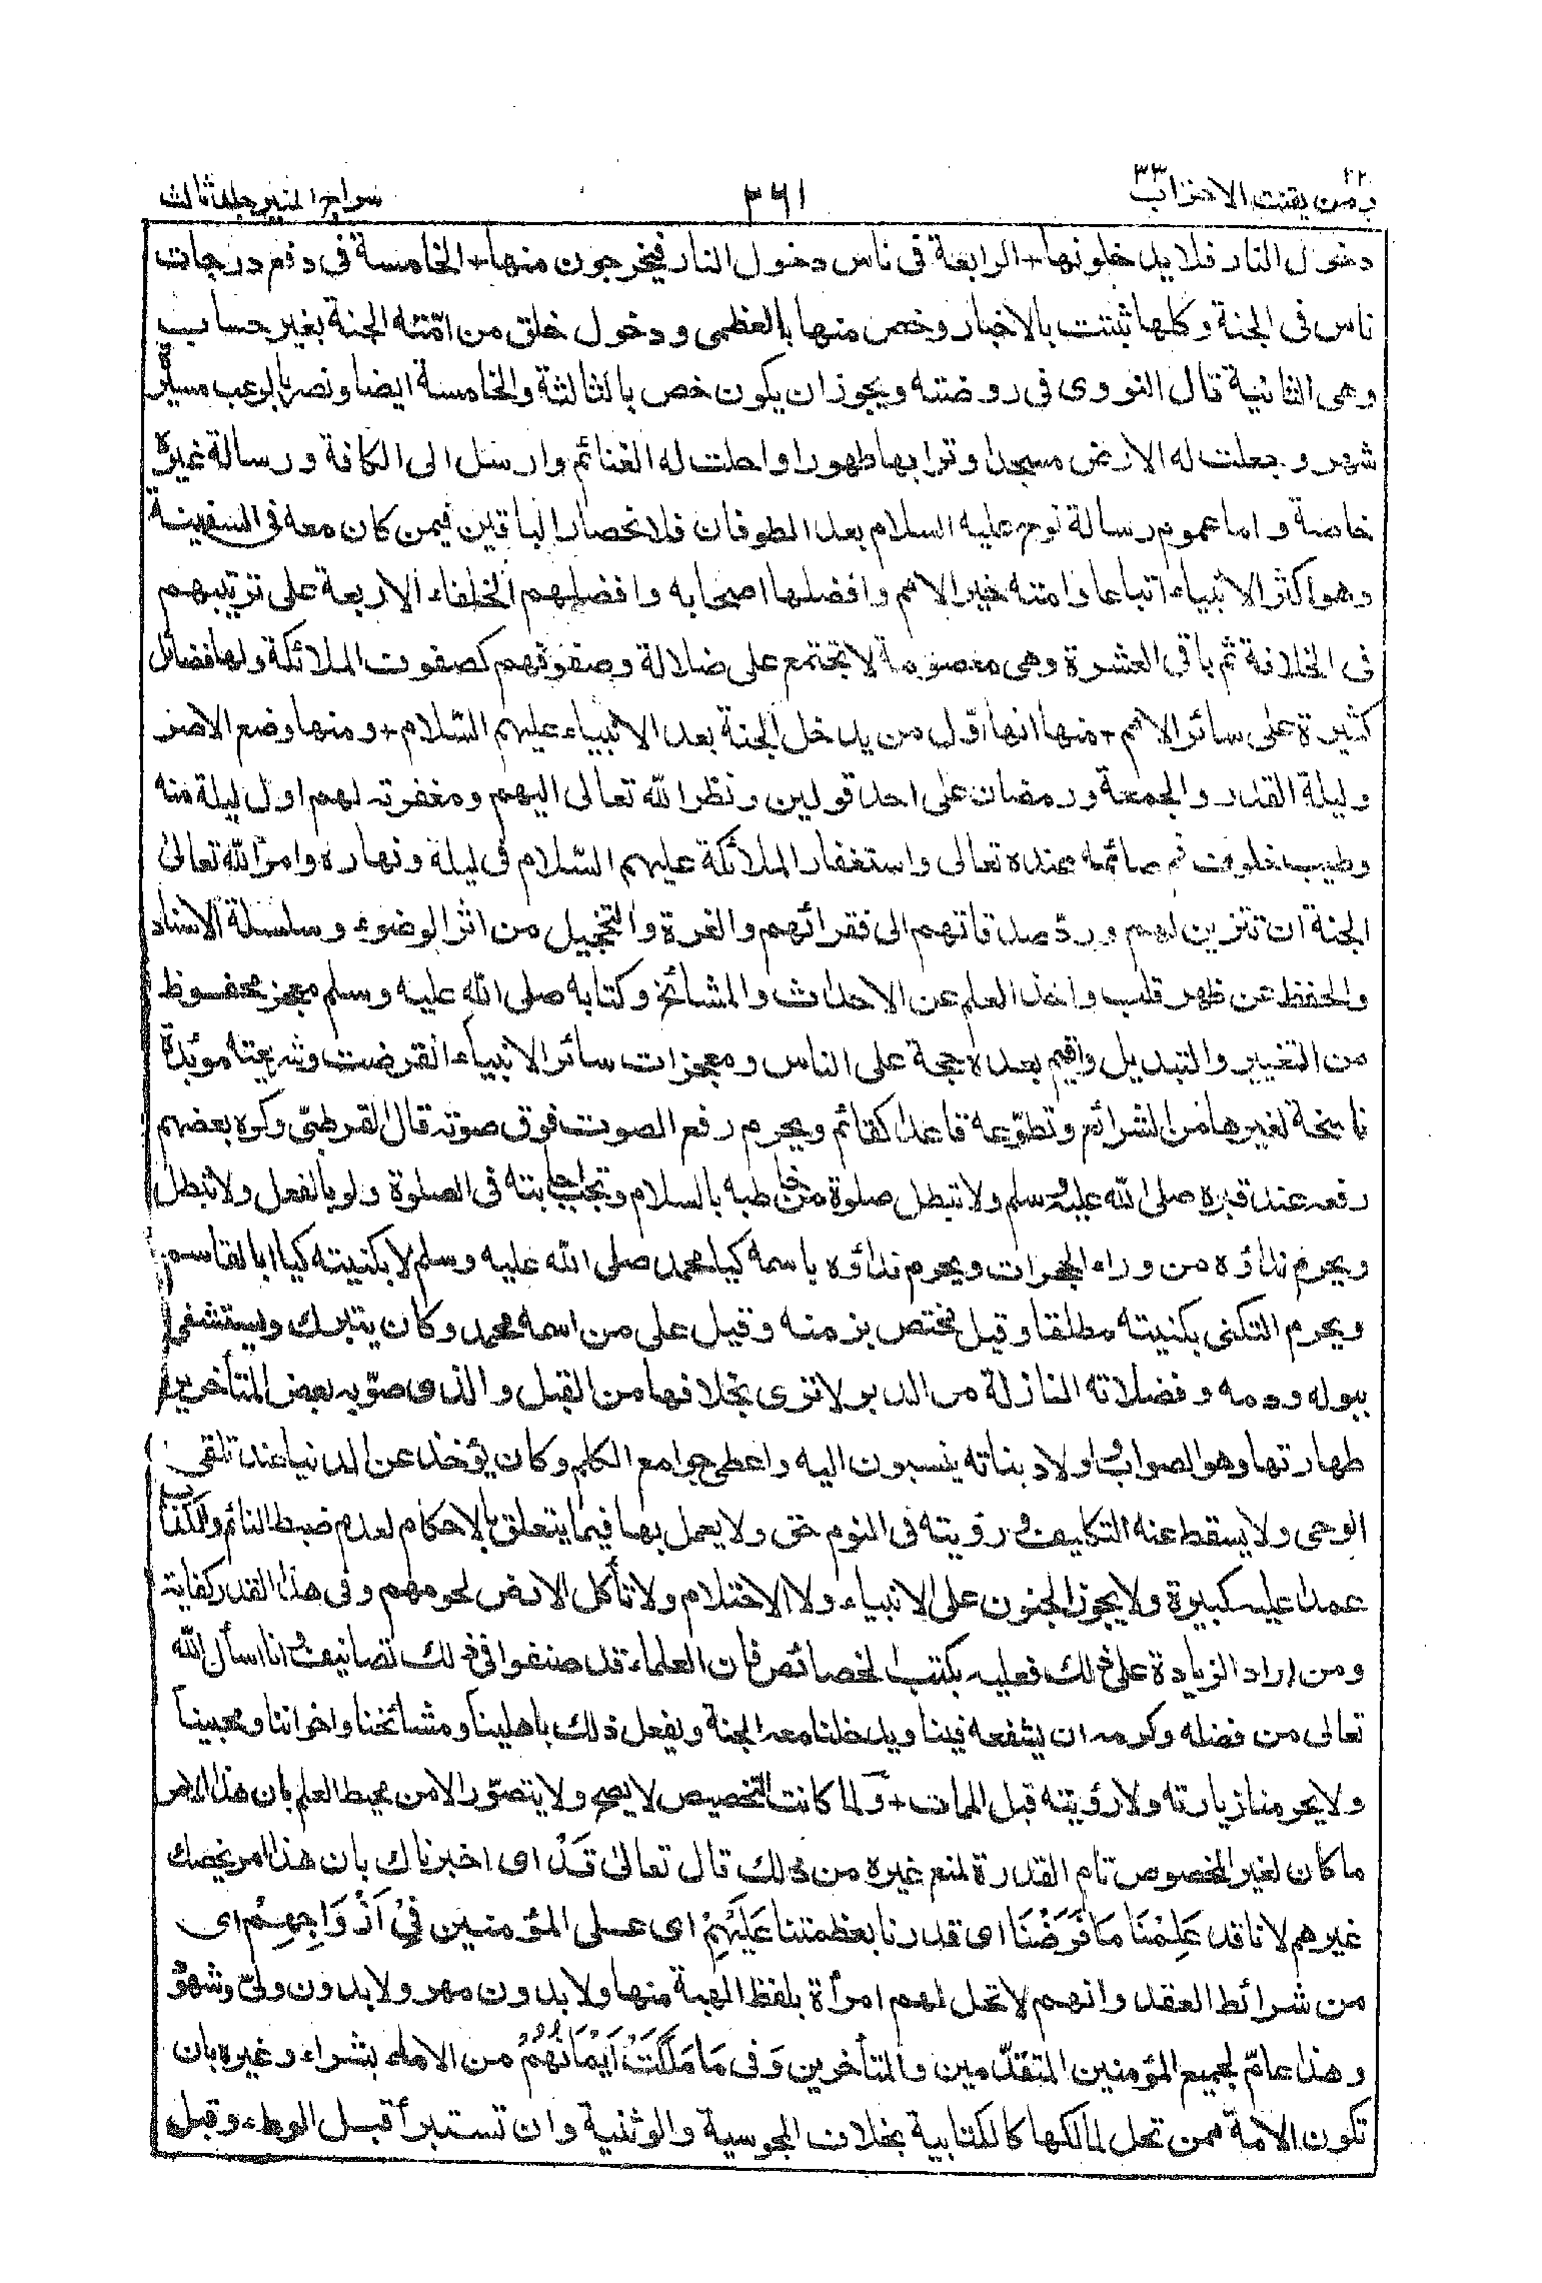 ٢٢ ومن يقنت الاحزاب ٣٣
٢٦١
سراج المنير جلد ثالث
دخول النار فلا يدخلونها + الرابعة فى ناس دخول النار فيخرجون منها + الخامسة فى رفع درجات
ناس فى الجنة وكلها ثبتت بالاخبار وخص منها بالعظمى ودخول خلق من امّته الجنة بغير حساب
وهى الثانية قال النووى فى روضته ويجوز ان يكون خص بالثالثة والخامسة ايضا ونصر بالرعب مسيرة
شهر وجعلت له الارض مسجدا وترابها طهورا واحلت له الغنائم وارسل الى الكافة ورسالة غيره
خاصة واما عموم رسالة نوح عليه السلام بعد الطوفان فلانحصار الباقين فيمن كان معه فى السفينة
وهو اكثر الانبياء اتباعا وامته خير الامم وافضلها اصحابه وافضلهم الخلفاء الاربعة على ترتيبهم
فى الخلافة ثم باقى العشرة وهى معصومة لا تجتمع على ضلالة وصفوفهم كصفوف الملائكة ولها فضائل
كثيرة على سائر الامم + منها انها اوّل من يدخل الجنة بعد الانبياء عليهم السّلام + ومنها وضع الاصر
وليلة القدر والجمعة ورمضان على احد قولين ونظر الله تعالى اليهم ومغفرته لهم اول ليلة منه
وطيب خلوف فم صائمه عنده تعالى واستغفار الملائكة عليهم السّلام فى ليلة ونهاره وامر الله تعالىٰ
الجنة ان تتزين لهم وردّ صدقاتهم الى فقرائهم والغرة والتحجيل من اثر الوضوء وسلسلة الاسناد
والحفظ عن ظهر قلب واخذ العلم عن الاحداث والمشائخ وكتابه صلى الله عليه وسلم معجز محفوظ
من التغيير والتبديل واقيم بعده حجة على الناس ومعجزات سائر الانبياء انقرضت وشريعته مؤبدة
ناسخة لغيرها من الشرائع وتطوّعه قاعدا كقائم ويحرم رفع الصوت فوق صوته قال القرطبىّ وكره بعضهم
رفعه عند قبره صلى الله عليه وسلم ولا تبطل صلوة من خاطبه بالسلام وتجب اجابته فى الصلوة ولو بالفعل ولا تبطل
ويحرم نداؤه من وراء الحجرات ويحرم نداؤه باسمه كيا محمد صلى الله عليه وسلم لا بكنيته كيا ابا القاسم
ويحرم التكنى بكنيته مطلقا وقيل مختص بزمنه وقيل على من اسمه محمد وكان يتبرك ويستشفى
ببوله ودمه وفضلاته النازلة من الدبر لا ترى بخلافها من القبل والذى صوّبه بعض المتأخرين
طهارتها وهو الصواب واولاد بناته ينسبون اليه واعطى جوامع الكلم وكان يؤخذ عن الدنيا عند تلقى
الوحى ولا يسقط عنه التكليف ورؤيته فى النوم حق ولا يعمل بها فيما يتعلق بالاحكام لعدم ضبط النائم والكذب
عمدا عليه كبيرة ولا يجوز الجنون على الانبياء ولا الاحتلام ولا تأكل الارض لحومهم وفى هذا القدر كفاية
ومن اراد الزيادة على ذلك فعليه بكتب الخصائص فان العلماء قد صنفوا فى ذلك تصانيف وانا اسأل الله
تعالى من فضله وكرمه ان يشفعه فينا ويدخلنا معه الجنة ويفعل ذلك باهلينا ومشائخنا واخواننا ومحبينا
ولا يحرمنا زيارته ولا رؤيته قبل الممات + ولما كانت التخصيص لا يصح ولا يتصوّر الا من محيط العلم بان هذا الامر
ما كان لغير المخصوص تام القدرة لمنع غيره من ذلك قال تعالىٰ قَدْ اى اخبرناك بان هذا امر يخصك
غيرهم لانا قد عَلِمْنَا مَا فَرَضْنَا اى قدرنا بعظمتنا عَلَيْهِمْ اى على المؤمنين فِىْ اَزْوَاجِهِمْ اى
من شرائط العقد وانهم لا تحل لهم امرأة بلفظ الهبة منها ولا بدون مهر ولا بدون ولىّ وشهود
وهذا عامّ لجميع المؤمنين المتقدّمين والمتأخرين وَفى مَا مَلَكَتْ اَيْمَانُهُمْ من الاماء بشراء وغيره بان
تكون الامة ممن تحل لمالكها كالكتابية بخلاف المجوسية والوثنية وان تستبرأ قبل الوطء وقيل